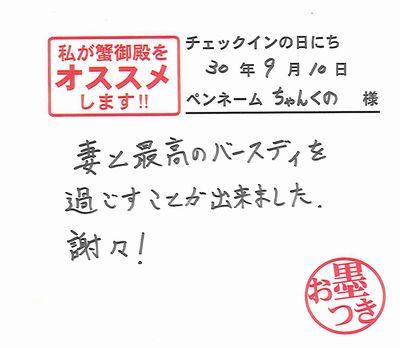 私が蟹御殿を
オススメ
します!!
チェックインの日にち
30年9月10日
ペンネーム ちゃんくの 様
妻と最高のバースディを
過ごすことが出来ました.
謝々!
お墨
つき